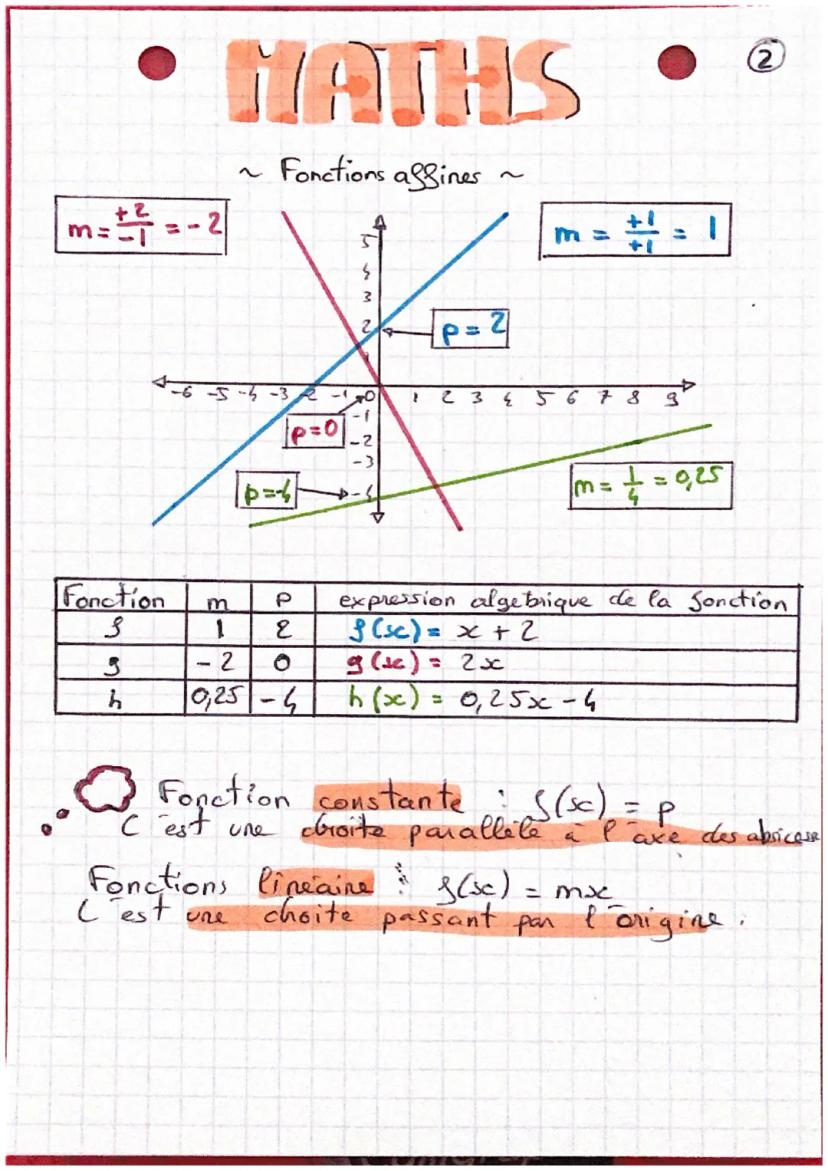 MATHS
2
~ Fonctions affines ~
m = +2/-1 = -2
m = +1/+1 = 1
5
4
3
2
1
p = 2
-6 -5 -4 -3 -2 -1 0 1 2 3 4 5 6 7 8 9
-1
p=0
-2
-3
p=-4
-4
m = 1/4 = 0,25
Fonction m P expression algebrique de la fonction
f 1 2 f(x) = x + 2
g -2 0 g(x) = 2x
h 0,25 -4 h(x) = 0,25x - 4
Fonction constante : f(x) = p
C'est une droite parallèle à l'axe des absicesse
Fonctions linéaire : f(x) = mx
C'est une droite passant par l'origine.